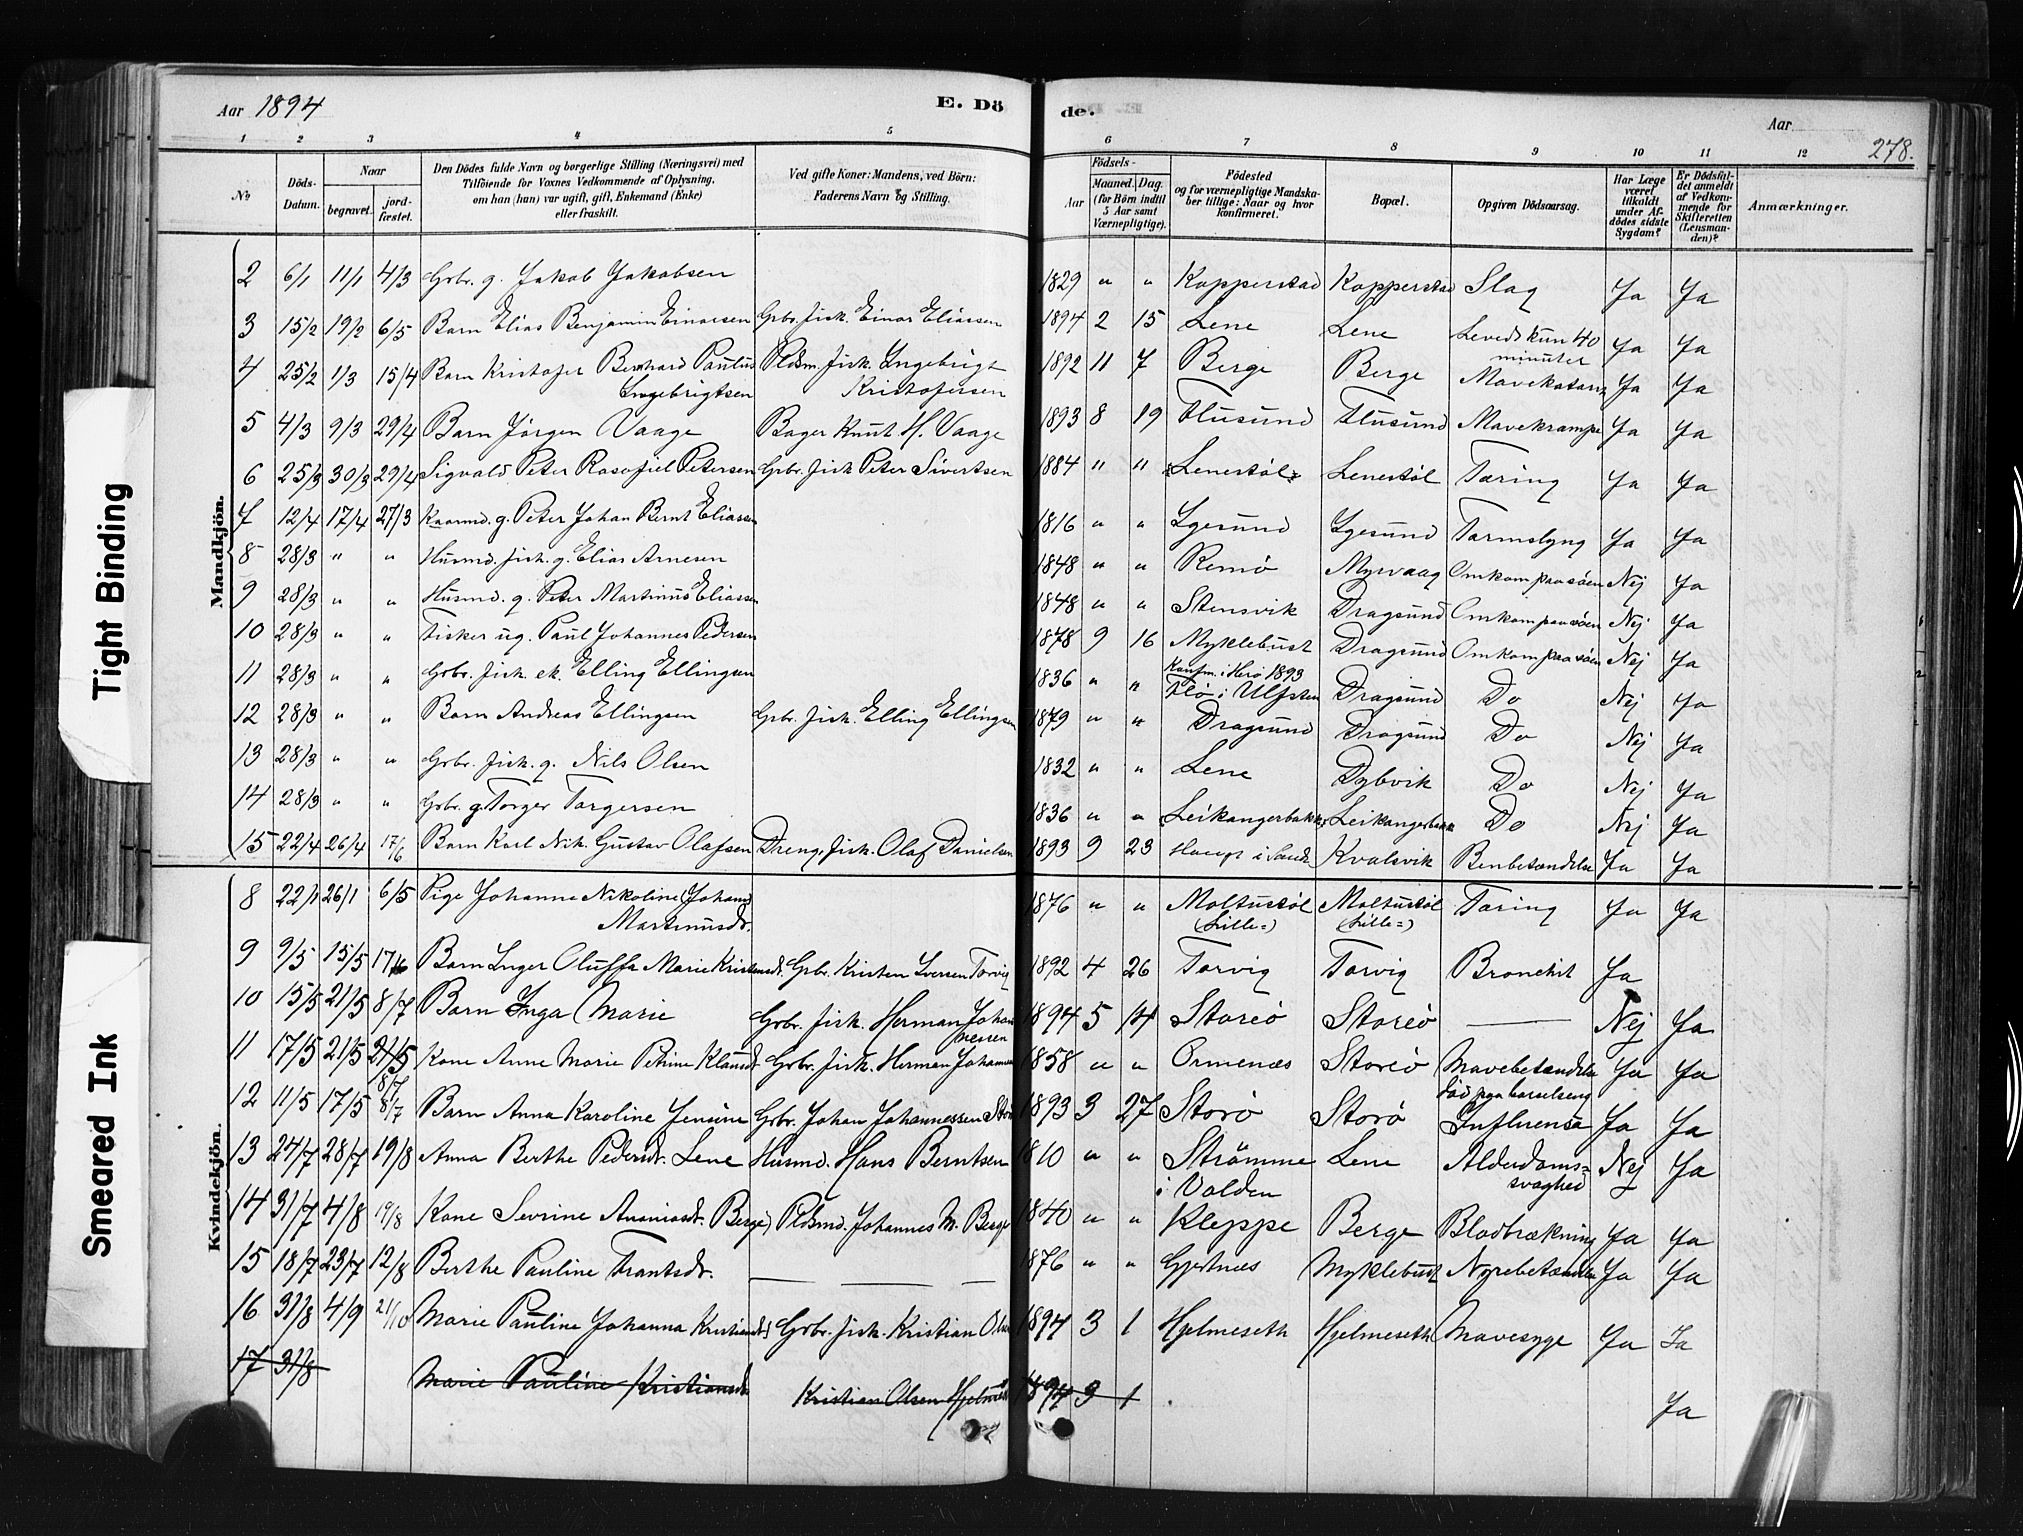 Aar 1894
E. Dö
de.
Aar
278.
1 2 3 4 5 6 7 8 9 10 11 12
No
Döds-Datum.
Naar
begravet.
jord-fæstet.
Den Dödes fulde Navn og borgerlige Stilling (Næringsvei) med
Tilföiende for Voxnes Vedkommende af Oplysning,
om han (hun) var ugift, gift, Enkemand (Enke)
eller fraskilt.
Ved gifte Koner: Mandens, ved Börn:
Faderens Navn og Stilling.
Födsels-
Aar
Maaned. Dag.
(for Börn indtil
5 Aar samt
Værnepligtige).
Födested
og for værnepligtige Mandska-
ber tillige: Naar og hvor
konfirmeret.
Bopæl.
Opgiven Dödsaarsag.
Har Læge
været
tilkaldt
under Af-
dödes sidste
Sygdom?
Er Dödsfal-
det anmeldt
af Vedkom-
mende for
Skifteretten
(Lensman-
den)?
Anmærkninger.
Tight Binding
Smeared Ink
Mandkjön.
2 6/1 11/1 4/3 Grbr. g. Jakob Jakobsen 1829 " " Kopperstad Kopperstad Slag Ja Ja
3 15/2 19/2 6/5 Barn Elias Benjamin Einarsen Grbr. fisk. Einar Eliassen 1894 2 15 Lene Lene Leved kun 40 minuter Ja Ja
4 25/2 1/3 15/4 Barn Kristofer Bernhard Paulus Ingebrigtsen Pldsm. fisk. Ingebrigt Kristofersen 1892 11 7 Berge Berge Mavekatarr Ja Ja
5 4/3 9/3 29/4 Barn Jørgen Vaage Bager Knut H. Vaage 1893 8 19 Flusund Flusund Mavekrampe Ja Ja
6 25/3 30/3 29/4 Sigvald Peter Rasofiel Petersen Grbr. fisk Peter Sivertsen 1884 " " Lenestøl Lenestøl Tæring Ja Ja
7 12/4 17/4 27/3 g. Peter Johan Bernt Eliassen 1816 " " Igesund Igesund Tarmslyng Ja Ja
8 28/3 " " Husmd. fisk. g. Elias Arnesen 1848 " " Remø Myrvaag Omkom paa søen Nej Ja
9 28/3 " " Husmd. g. Peter Martinus Eliassen 1848 " " Stensvik Dragsund Omkom paa søen Nej Ja
10 28/3 " " Fisker ug. Paul Johannes Pedersen 1878 9 16 Myklebust Konfm. i Herø 1893 Dragsund Omkom paa søen Nej Ja
11 28/3 " " Grbr. fisk. ek. Elling Ellingsen 1836 " " Flø i Ulfsten Dragsund Do Nej Ja
12 28/3 " " Barn Andreas Ellingsen Grbr. fisk. Elling Ellingsen 1879 " " Dragsund Dragsund Do Nej Ja
13 28/3 " " Grbr. fisk. g. Nils Olsen 1832 " " Lene Dybvik Do Nej Ja
14 28/3 " " Grbr. g. Torger Torgersen 1836 " " Leikangerbakk Leikangerbakk Do Nej Ja
15 22/4 26/4 17/6 Barn Karl Nik. Gustav Olafsen Dreng, fisk. Olaf Danielsen 1893 9 23 i Sande Kvalsvik Benbetændelse Ja Ja
Kvindekjön.
8 22/1 26/1 6/5 Pige Johanne Nikoline Johans Martinusdt. 1876 " " Moltustøl (Lille=) Moltustøl (Lille=) Tæring Ja Ja
9 9/5 15/5 17/6 Barn Inger Oluffa Marie Kristensdt. Grbr. Kristen Iversen Torvig 1892 4 26 Torvig Torvig Bronchit Ja
10 15/5 21/5 8/7 Barn Inga Marie Grbr. fisk. Herman Johannessen 1894 5 14 Storeø Storeø — Nej Ja
11 17/5 21/5 21/5 8/7 Kone Anne Marie Petrine Klausdt. Grbr. fisk. Herman Johannesen 1858 " " Ormenæs Storeø Mavebetændelse død paa barselseng Ja Ja
12 11/5 17/5 8/7 Barn Anna Karoline Jensine Grbr. Johan Johannessen Storø 1893 3 27 Storø Storø Influensa Ja Ja
13 24/7 28/7 19/8 Anna Berthe Pedersdt. Lene Husmd. Hans Berntsen 1810 " " Strømme i Volden Lene Alderdoms=svaghed Nej Ja
14 31/7 4/8 19/8 Kone Sevrine Ananiasdt. Berge Pldsmd. Johannes M. Berge 1840 " " Kleppe Berge Blodbrækning Ja Ja
15 18/7 23/7 12/8 Berthe Pauline Frantsdt. — — — 1876 " " Gjertnæs Myklebust Nyrebetændelse Ja Ja
16 31/8 4/9 21/10 Marie Pauline Johanna Kristiansdt. Grbr. fisk. Kristian Olsen 1894 3 1 Hjelmeseth Hjelmeseth Mavesyge Ja Ja
17 31/8 Marie Pauline Kristiansdt. Kristian Olsen Hjelmeseth 1894 3 1 Ja